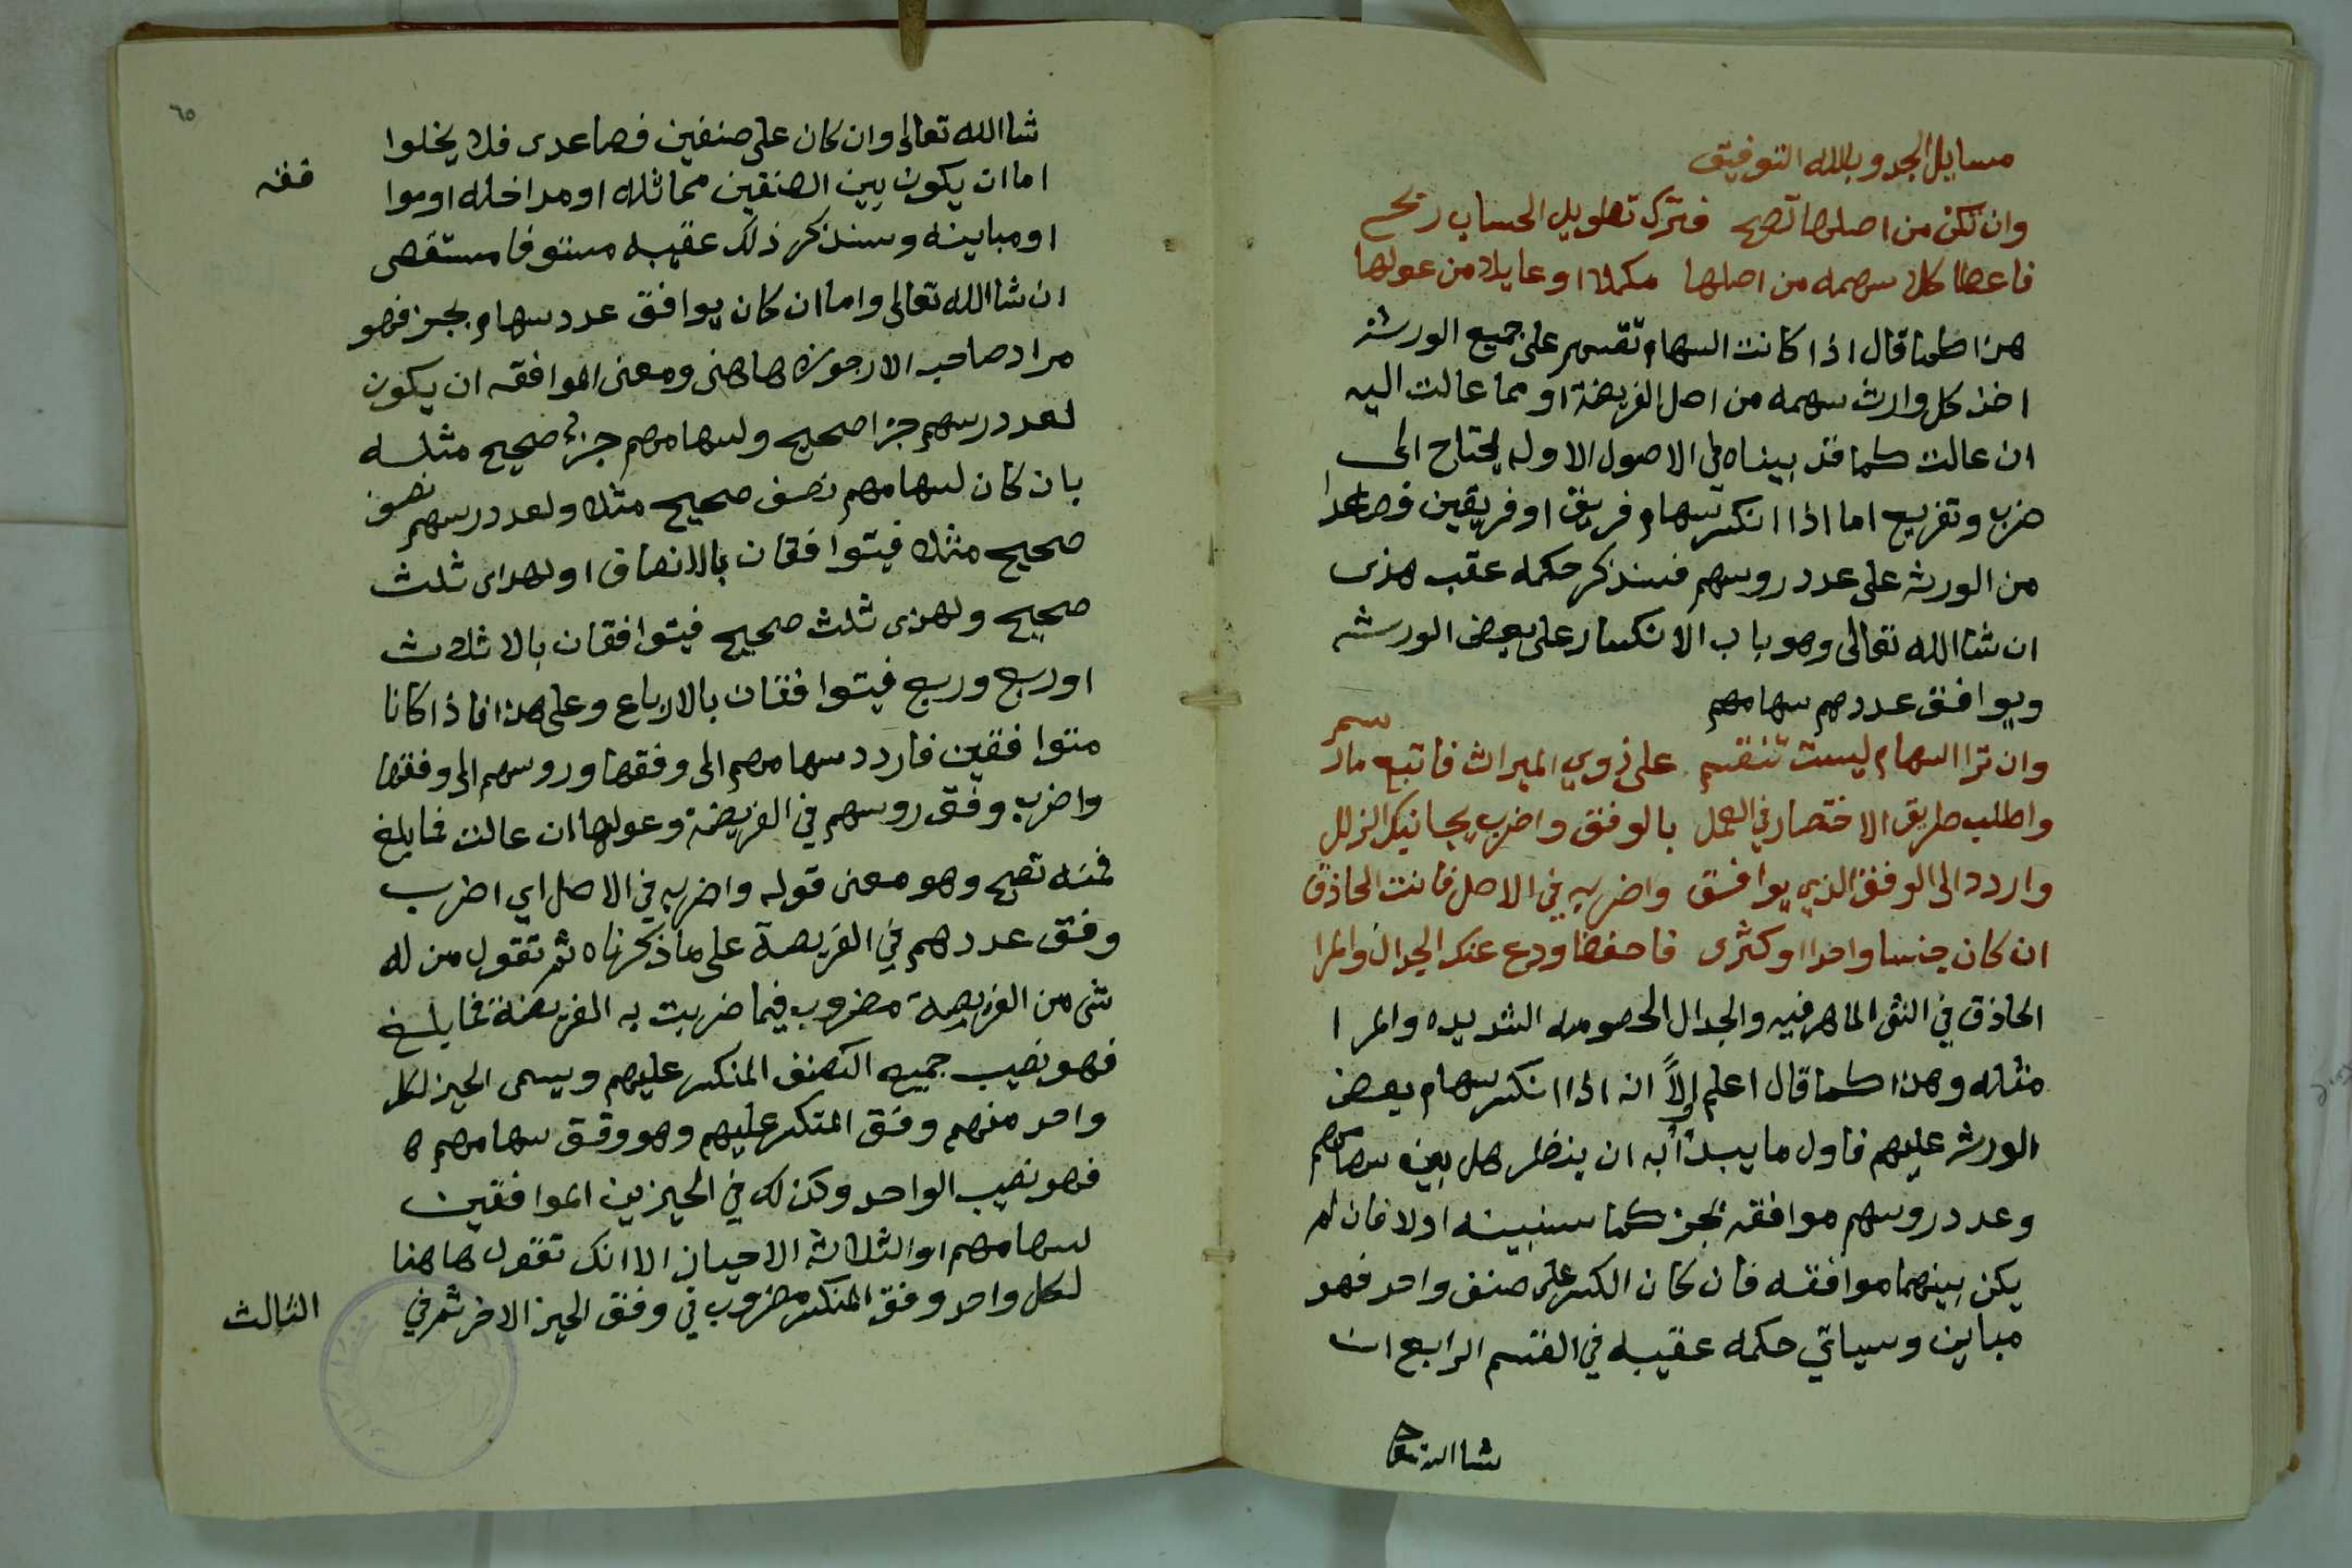 مسايل الجد وبالله التوفيق
وان تكن من اصلها تصح فترك تطويل الحساب ربح
فاعط كلا سهمه من اصلها مكملا او عايلا من عولها
هذا كما قال اذا كانت السهام تقسم على جميع الورثة
اخذ كل وارث سهمه من اصل الفريضة او مما عالت اليه
ان عالت كما قد بيناه في الاصول الاول يحتاج الى
ضرب وتفريع اما اذا انكسر سهام فريق او فريقين فصاعدا
من الورثه على عدد روسهم فسنذكر حكمه عقب هذى
ان شا الله تعالى وهو باب الانكسار على بعض الورثه
ويوافق عددهم سهامهم
وان ترا السهام ليست تنقسم على ذوي الميراث فاتبع ما رسم
واطلب طريق الاختصار في العمل بالوفق واضرب يجانبك الزلل
واردد الى الوفق الذي يوافق واضربه في الاصل فانت الحاذق
ان كان جنسا واحدا او كثرى فاحفظ ودع عنك الجدال والمرا
الحاذق في الشى الماهر فيه والجدال الخصومه الشديده والمرا
مثله وهذا كما قال اعلم اولا انه اذا انكسر سهام بعض
الورثه عليهم فاول ما يبدأ به ان ينظر هل بين سهامهم
وعدد روسهم موافقه بجز كما سنبينه اولا فان لم
يكن بينهما موافقه فان كان الكسر على صنف واحد فهو
مباين وسياتي حكمه عقيبه في القسم الرابع ان
شا الله تعا
٦٥
فقه
شا الله تعالى وان كان على صنفين فصاعدى فلا يخلوا
اما ان يكون بين الصنفين مماثله او مداخله او موا
او مباينه وسنذكر ذلك عقيبه مستوفا مستقصى
ان شا الله تعالى واما ان كان يوافق عدد سهام بجز فهو
مراد صاحب الارجوزه هاهنى ومعنى الموافقه ان يكون
لعدد رسهم جزا صحيح ولسهامهم جزء صحيح مثله
بان كان لسهامهم نصف صحيح مثلا ولعدد رسهم نصف
صحيح مثلا فيتوافقان بالانصاف او لهداى ثلث
صحيح ولهذى ثلث صحيح فيتوافقان بالاثلاث
او ربع وربع فيتوافقان بالارباع وعلى هذا فاذا كانا
متوافقين فاردد سهامهم الى وفقها وروسهم الى وفقها
واضرب وفق روسهم في الفريضة وعولها ان عالت فما بلغ
فمنه تصح وهو معنى قوله واضربه في الاصل اي اضرب
وفق عددهم في الفريضة على ما ذكرناه ثم تقول من له
شى من الفريضة مضروب فيما ضربت به الفريضة فما بلغ
فهو نصيب جميع الصنف المنكسر عليهم ويسمى الحيز لكل
واحد منهم وفق المنكسر عليهم وهو وفق سهامهم
فهو نصيب الواحد وكذلك في الحيزين الموافقين
لسهامهم او الثلاثه الاحياز الا انك تقول هاهنا
لكل واحد وفق المنكسر مضروب في وفق الحيز الاخر ثم في
الثالث